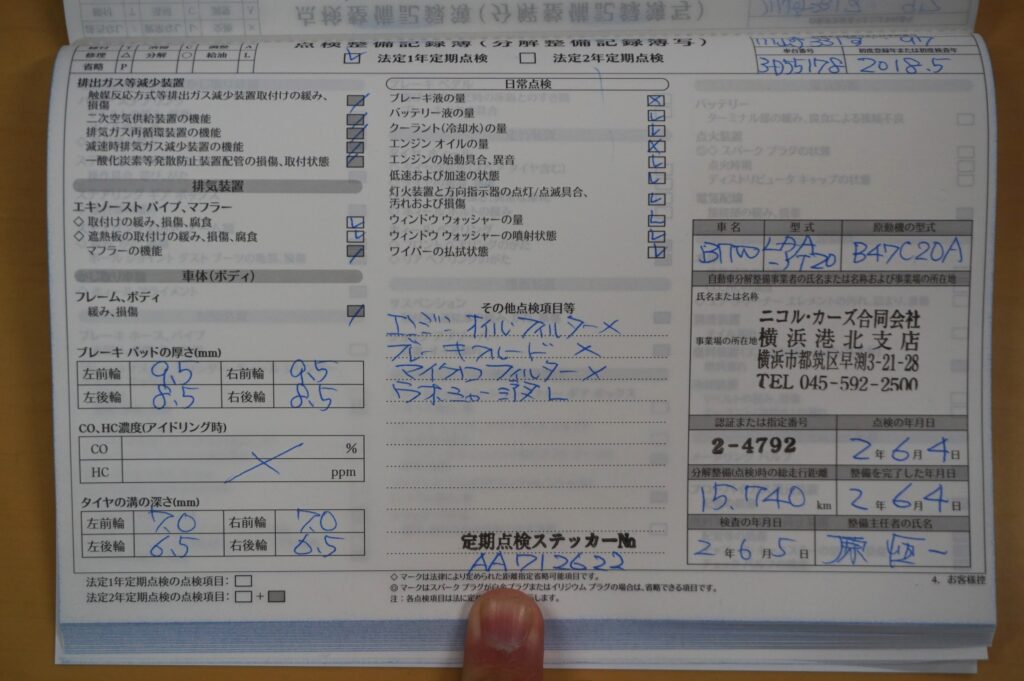 点検整備記録簿(分解整備記録簿写)
修理 △ 分解 ○ 給油 L
省略 P
法定1年定期点検 法定2年定期点検
車台番号 初度登録年または初度検査年
3D55178 2018.5
排出ガス等減少装置
触媒反応方式等排出ガス減少装置取付けの緩み、
損傷
二次空気供給装置の機能
排気ガス再循環装置の機能
減速時排気ガス減少装置の機能
一酸化炭素等発散防止装置配管の損傷、取付状態
排気装置
エキゾースト パイプ、マフラー
◇ 取付けの緩み、損傷、腐食
◇ 遮熱板の取付けの緩み、損傷、腐食
マフラーの機能
車体(ボディ)
フレーム、ボディ
緩み、損傷
ブレーキ パッドの厚さ(mm)
左前輪 9.5 右前輪 9.5
左後輪 8.5 右後輪 8.5
CO、HC濃度(アイドリング時)
CO %
HC ppm
タイヤの溝の深さ(mm)
左前輪 7.0 右前輪 7.0
左後輪 6.5 右後輪 6.5
法定1年定期点検の点検項目:
法定2年定期点検の点検項目: +
日常点検
ブレーキ液の量
バッテリー液の量
クーラント(冷却水)の量
エンジン オイルの量
エンジンの始動具合、異音
低速および加速の状態
灯火装置と方向指示器の点灯/点滅具合、
汚れおよび損傷
ウィンドウ ウォッシャーの量
ウィンドウ ウォッシャーの噴射状態
ワイパーの払拭状態
その他点検項目等
エンジン オイル・フィルター ×
ブレーキフルード ×
マイクロフィルター ×
定期点検ステッカーNo
AA712622
◇ マークは法律により定められた距離指定省略可能項目です。
◎ マークはスパーク プラグが白金プラグまたはイリジウム プラグの場合は、省略できる項目です。
注:各点検項目は法に定
車名 型式 原動機の型式
BMW LDA-2T20 B47C20A
自動車分解整備事業者の氏名または名称および事業場の所在地
氏名または名称
事業場の所在地
ニコル・カーズ合同会社
横浜港北支店
横浜市都筑区早渕3-21-28
TEL 045-592-2500
認証または指定番号 点検の年月日
2-4792 2年6月4日
分解整備(点検)時の総走行距離 整備を完了した年月日
15,740 km 2年6月4日
検査の年月日 整備主任者の氏名
2年6月5日 原 恒一
4. お客様控